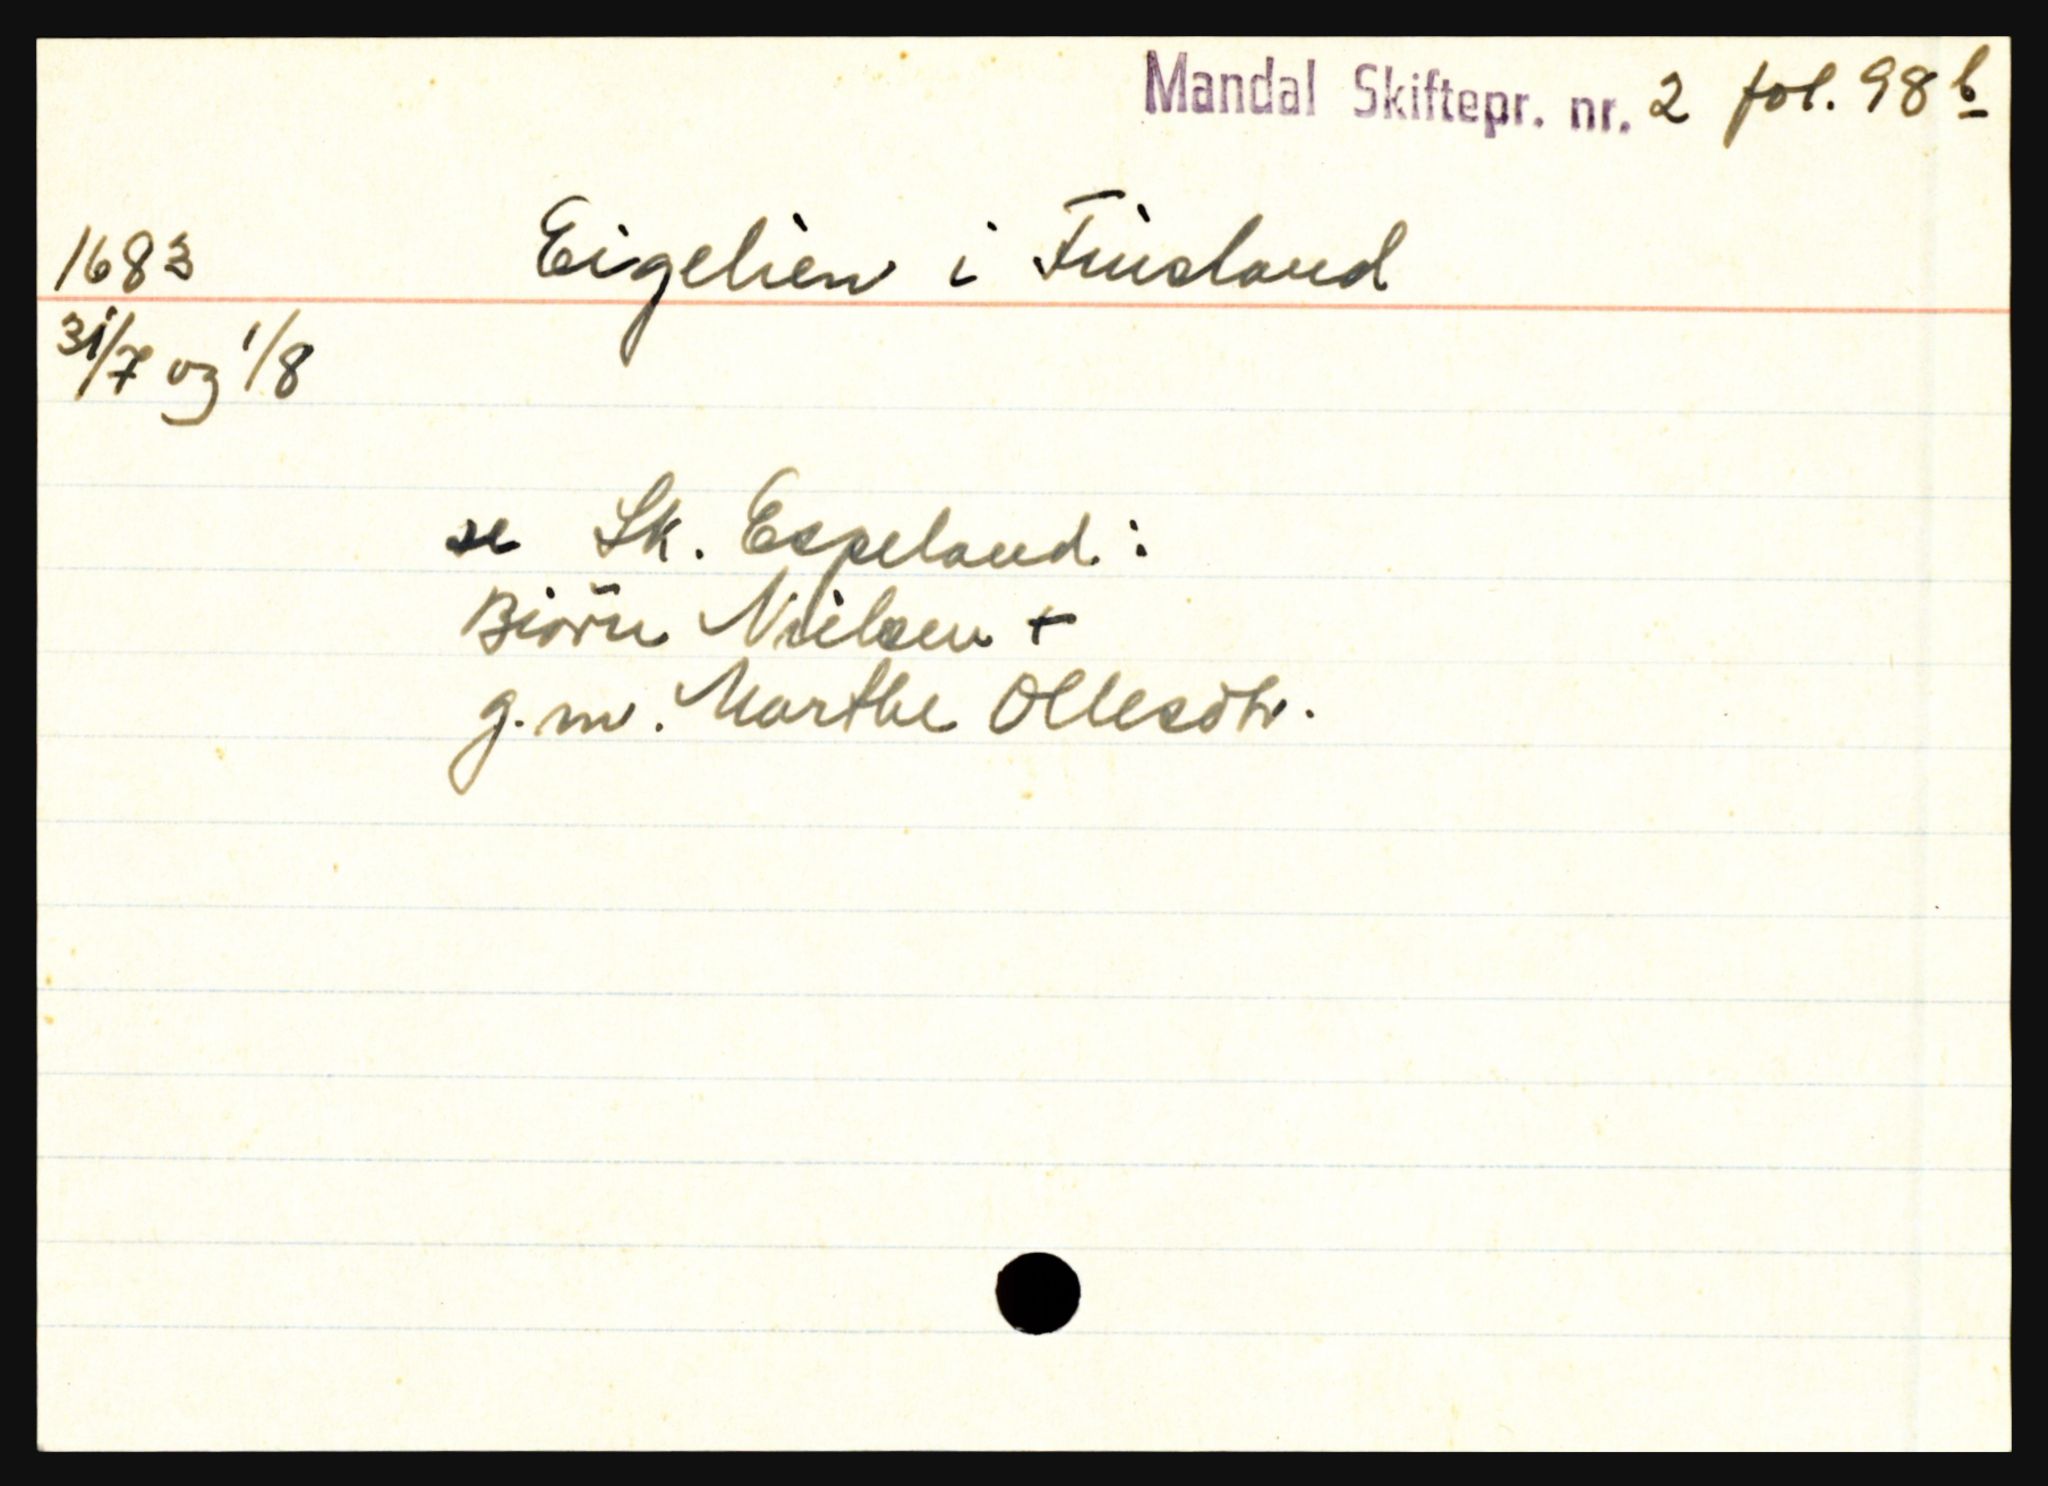 Mandal Skiftepr. nr. 2 fol. 98 b
1683 Eigelien i Finsland
31/7 og 1/8
se Sk. Espeland:
Biörn Nielsen +
g. m. Marthe Ollesdtr.